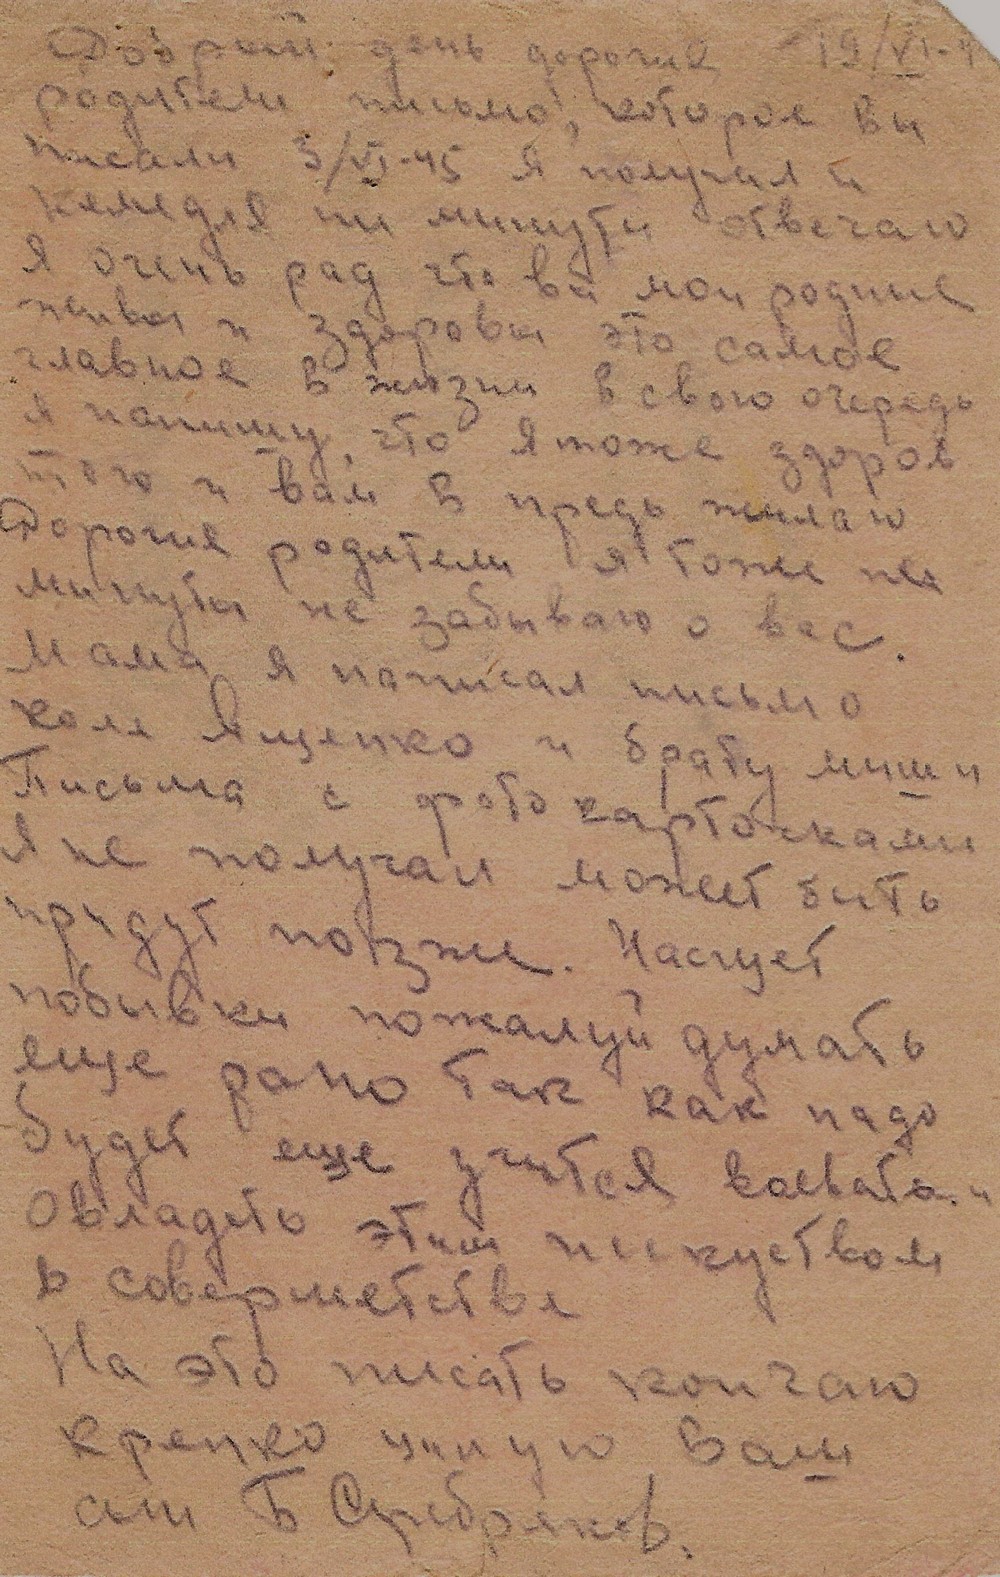 Добрый день дорогие 19/VI-4
родители письмо, которое вы
писали 3/VI-45 я получил и
немедля ни минуты отвечаю
Я очень рад что вы мои родные
живы и здоровы это самое
главное в жизни в свою очередь
я напишу, что я тоже здоров
того и вам в предь желаю
Дорогие родители я тоже не
минуты не забываю о вас.
Мама я написал письмо
коле Ященко и брату миши
Письма с фото карточками
Я не получал может быть
придут позже. Насчет
побывки пожалуй думать
еще рано так как надо
будет еще учится воевать и
Овладеть этим искуством
в совершетстве
На это писать кончаю
крепко целую Ваш
сын Б Серебряков.